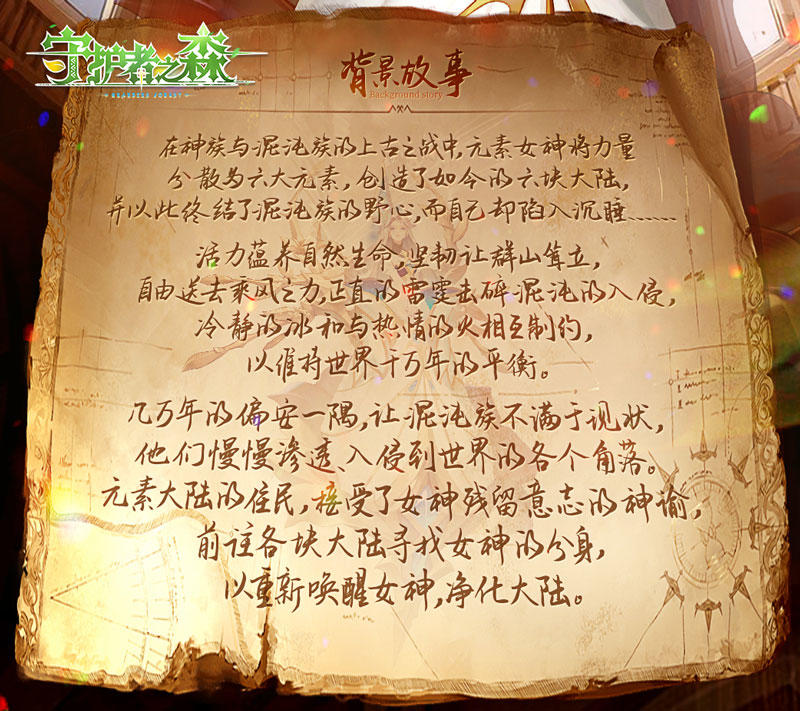 守护者之森
背景故事
Background story
在神族与混沌族的上古之战中,元素女神将力量
分散为六大元素,创造了如今的六块大陆,
并以此终结了混沌族的野心,而自己却陷入沉睡......
活力蕴养自然生命,坚韧让群山耸立,
自由送去乘风之力,正直的雷霆击碎混沌的入侵,
冷静的冰和与热情的火相互制约,
以维持世界千万年的平衡。
几万年的偏安一隅,让混沌族不满于现状,
他们慢慢渗透、入侵到世界的各个角落。
元素大陆的住民,接受了女神残留意志的神谕,
前往各块大陆寻找女神的分身,
以重新唤醒女神,净化大陆。